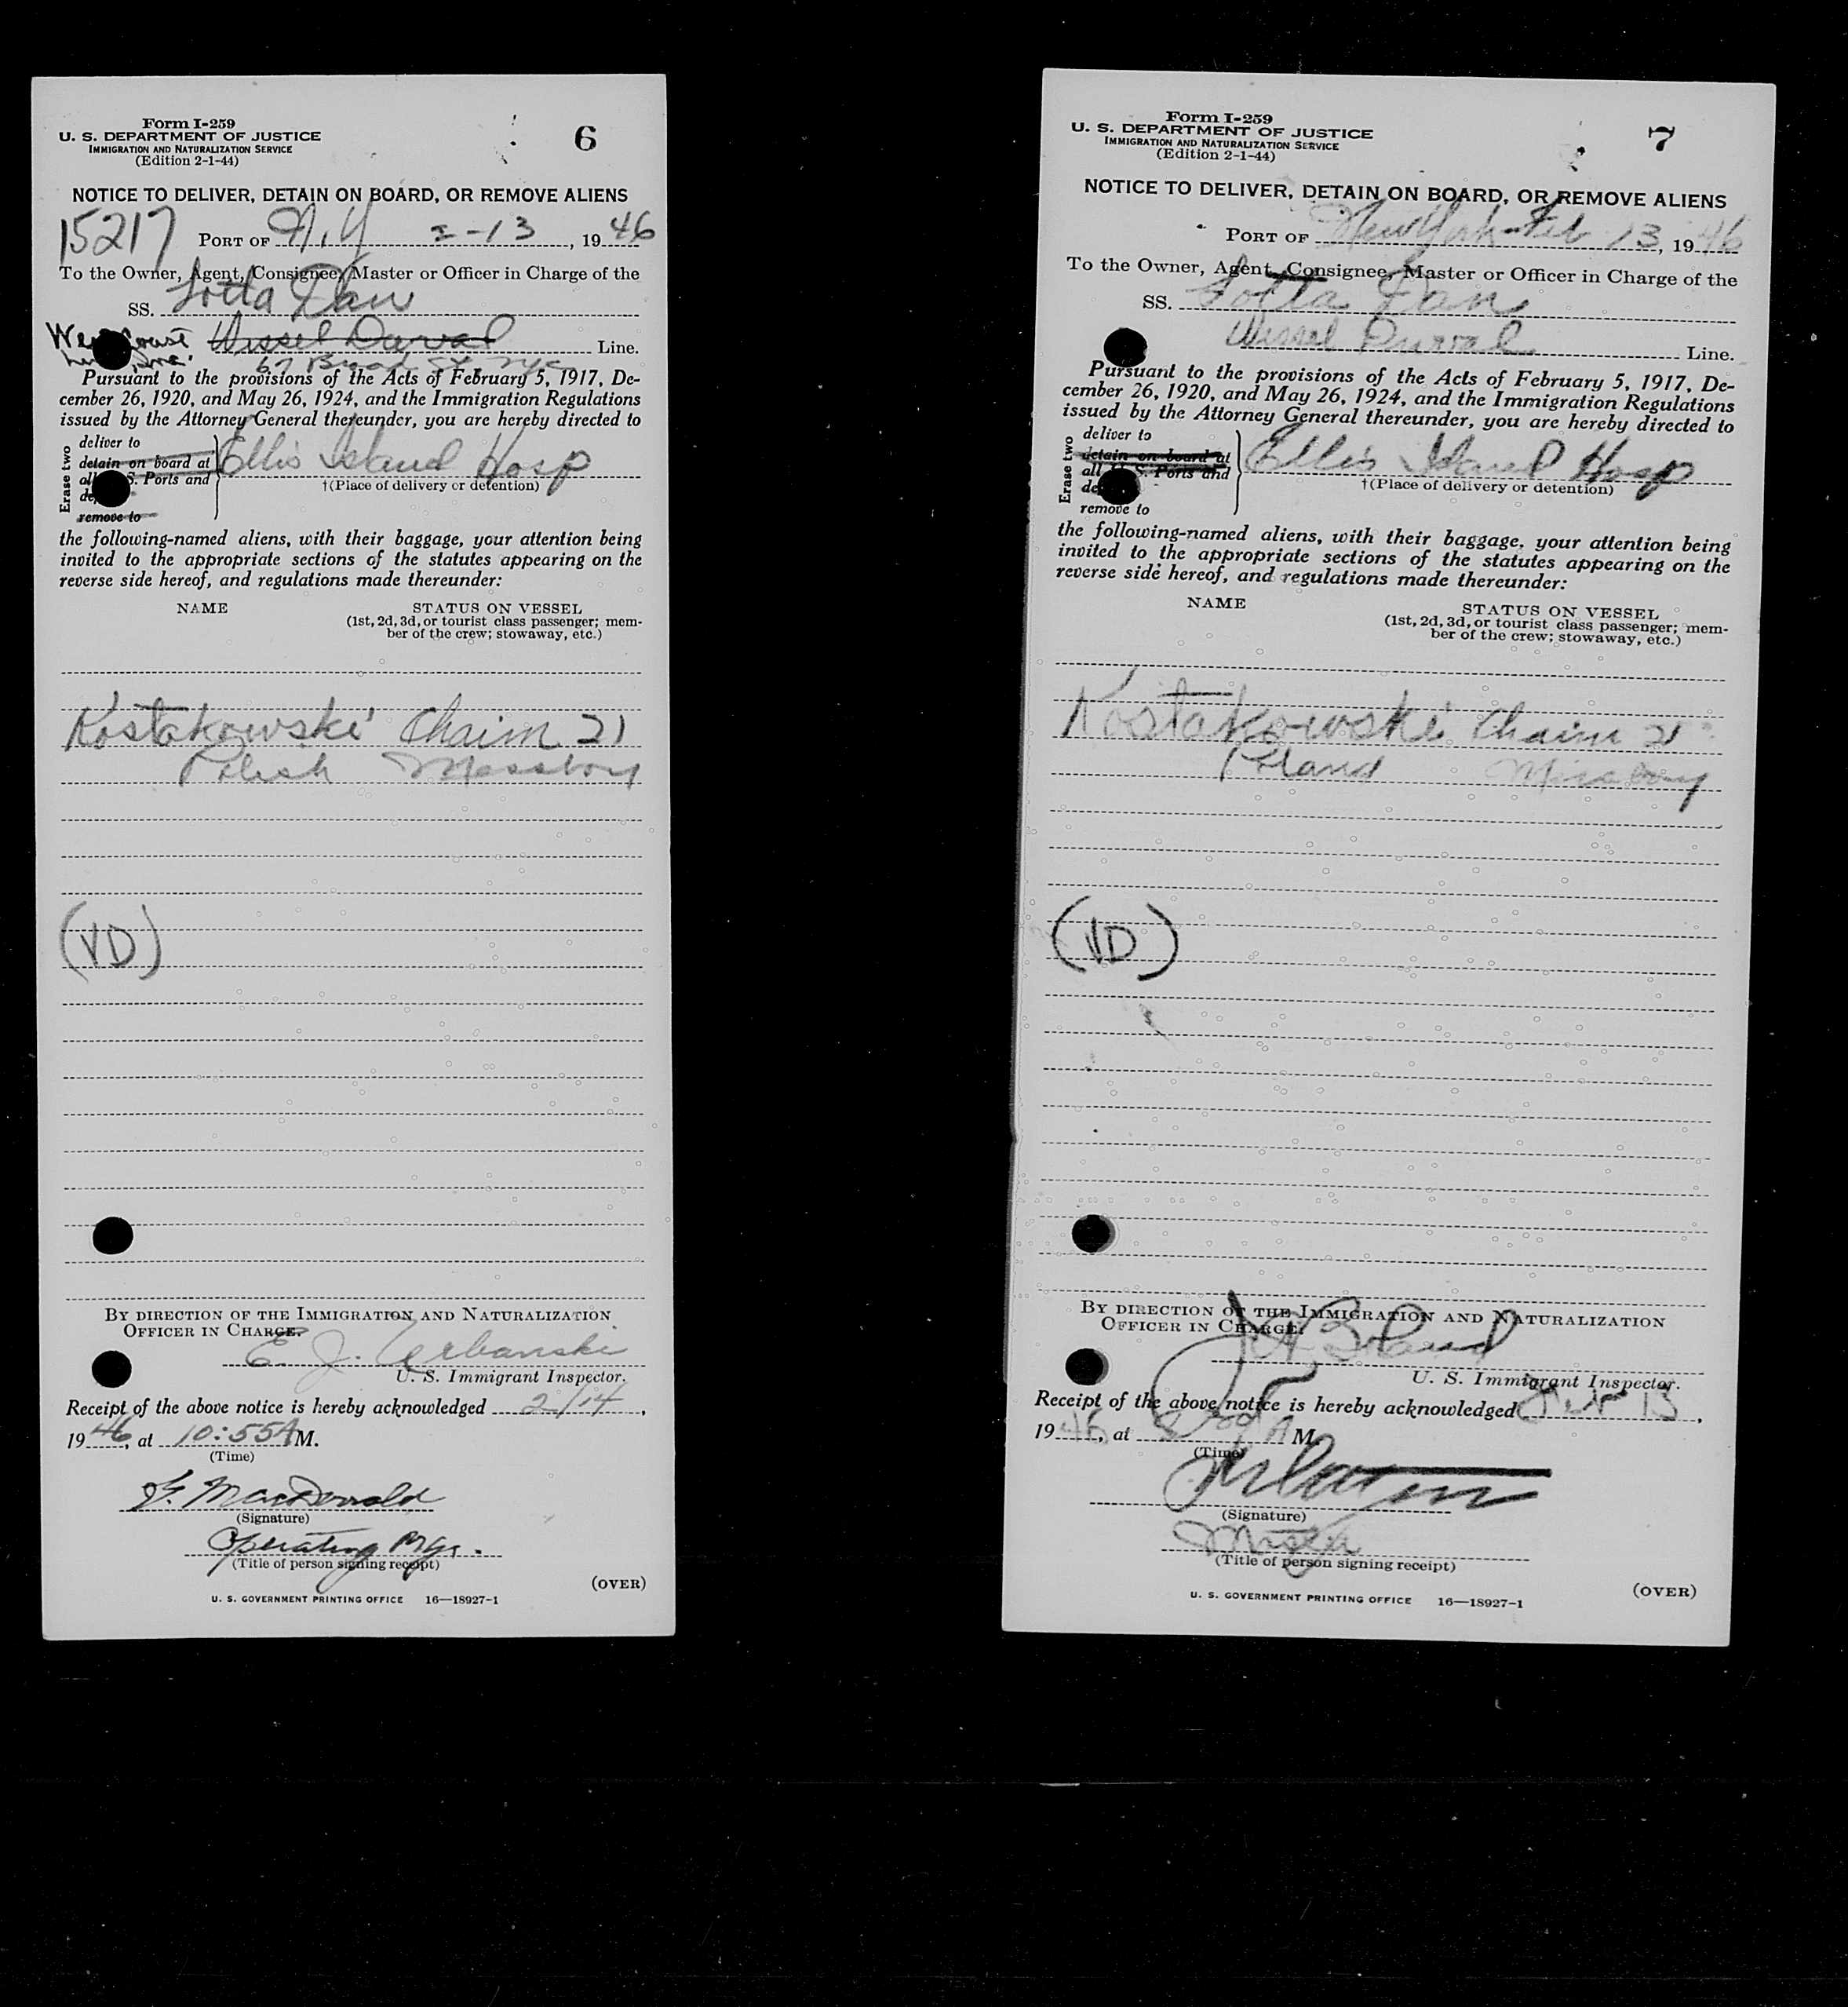 Form I-259
U. S. DEPARTMENT OF JUSTICE
IMMIGRATION AND NATURALIZATION SERVICE
(Edition 2-1-44)
6
NOTICE TO DELIVER, DETAIN ON BOARD, OR REMOVE ALIENS
15217 PORT OF N.Y 2-13, 1946
To the Owner, Agent, Consignee, Master or Officer in Charge of the
SS. Lotta Dan
Wessel Duval Line.
Inc. 67 Broad St NYC
Pursuant to the provisions of the Acts of February 5, 1917, De-
cember 26, 1920, and May 26, 1924, and the Immigration Regulations
issued by the Attorney General thereunder, you are hereby directed to
Erase two
deliver to
detain on board at
all U. S. Ports and
remove to
Ellis Island Hosp
†(Place of delivery or detention)
the following-named aliens, with their baggage, your attention being
invited to the appropriate sections of the statutes appearing on the
reverse side hereof, and regulations made thereunder:
NAME STATUS ON VESSEL
(1st, 2d, 3d, or tourist class passenger; mem-
ber of the crew; stowaway, etc.)
Kostakowski Chaim 21
Polish Messboy
(VD)
BY DIRECTION OF THE IMMIGRATION AND NATURALIZATION
OFFICER IN CHARGE.
E. J. Urbanski
U. S. Immigrant Inspector.
Receipt of the above notice is hereby acknowledged 2/14,
1946, at 10:55 A M.
(Time)
MacDonald
(Signature)
Operating Mgr.
(Title of person signing receipt)
(OVER)
U. S. GOVERNMENT PRINTING OFFICE 16—18927-1
Form I-259
U. S. DEPARTMENT OF JUSTICE
IMMIGRATION AND NATURALIZATION SERVICE
(Edition 2-1-44)
7
NOTICE TO DELIVER, DETAIN ON BOARD, OR REMOVE ALIENS
PORT OF New York Feb 13, 1946
To the Owner, Agent, Consignee, Master or Officer in Charge of the
SS. Lotta Dan
Wessel Duval Line.
Pursuant to the provisions of the Acts of February 5, 1917, De-
cember 26, 1920, and May 26, 1924, and the Immigration Regulations
issued by the Attorney General thereunder, you are hereby directed to
Erase two
deliver to
detain on board at
all U. S. Ports and
remove to
Ellis Island Hosp
†(Place of delivery or detention)
the following-named aliens, with their baggage, your attention being
invited to the appropriate sections of the statutes appearing on the
reverse side hereof, and regulations made thereunder:
NAME STATUS ON VESSEL
(1st, 2d, 3d, or tourist class passenger; mem-
ber of the crew; stowaway, etc.)
Kostakowski Chaim 21
Poland Messboy
(VD)
BY DIRECTION OF THE IMMIGRATION AND NATURALIZATION
OFFICER IN CHARGE.
U. S. Immigrant Inspector.
Receipt of the above notice is hereby acknowledged Feb 13,
1946, at A M.
(Time)
(Signature)
Master
(Title of person signing receipt)
(OVER)
U. S. GOVERNMENT PRINTING OFFICE 16—18927-1